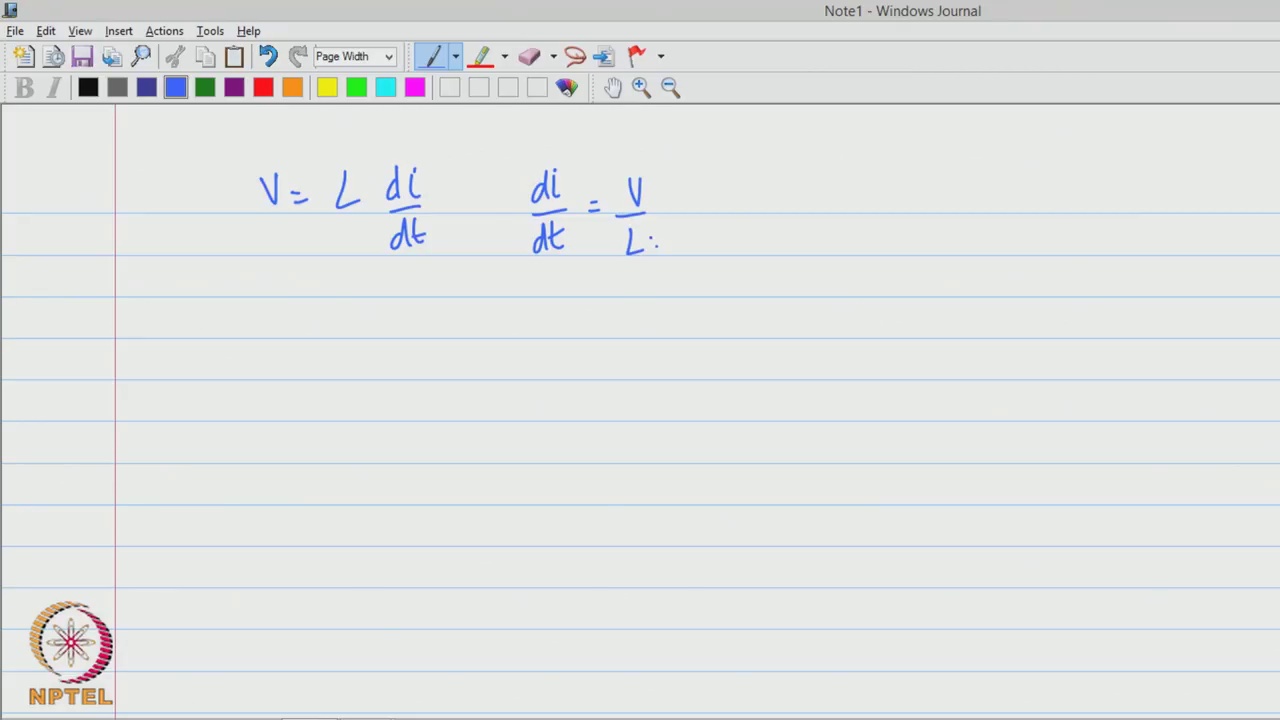 Note1 - Windows Journal
File Edit View Insert Actions Tools Help
Page Width
B I
V = L di/dt di/dt = V/L
NPTEL